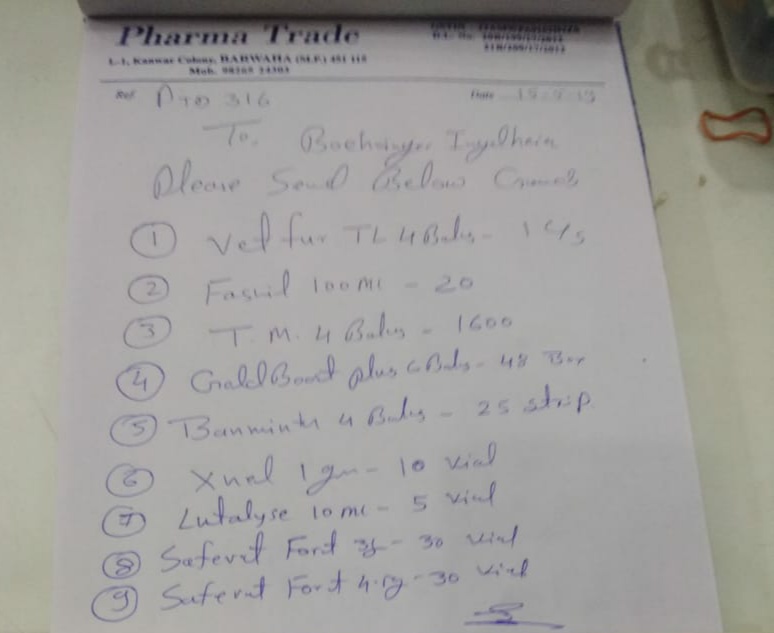 Pharma Trade
L-1, Kanwar Colony, BARWAHA (M.P.) 451 115
Mob.
Ref. 316
Date
To, Boehringer Ingelheim
Please Send Below
① Vet fur TL 4 Bolus -
② 100 ml - 20
③ T.M. 4 Bolus - 1600
④ Gold Boost plus 6 Bols - 48 Box
⑤ Banminth 4 Bolus - 25 strip
⑥ Xnel 1 gm - 10 vial
⑦ Lutalyse 10 ml - 5 vial
⑧ Safevet Fort 3g - 30 vial
⑨ Safevet Fort - 30 vial